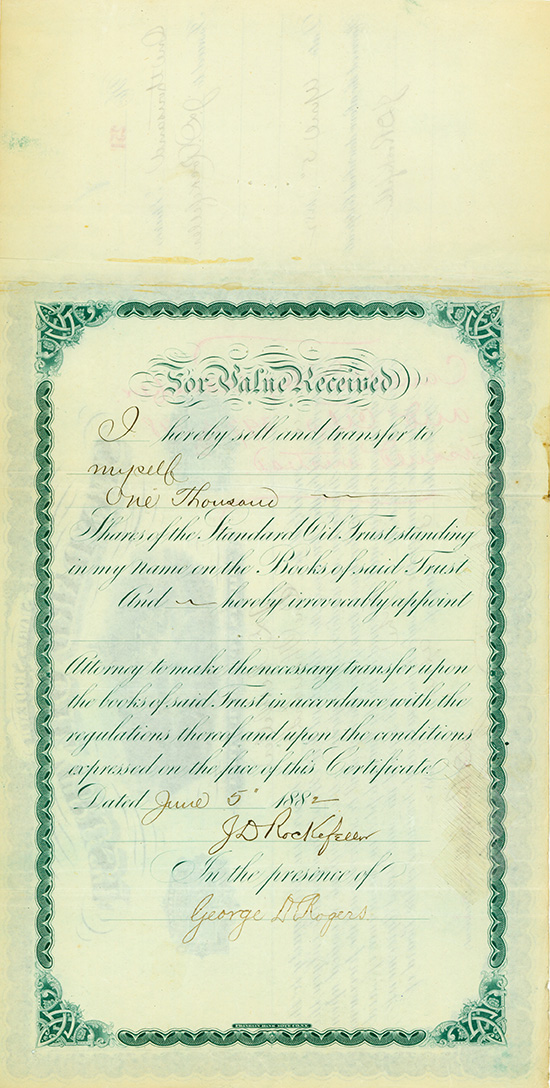 For Value Received
I hereby sell and transfer to
myself
One Thousand
Shares of the Standard Oil Trust standing
in my name on the Books of said Trust
And hereby irrevocably appoint
Attorney to make the necessary transfer upon
the books of said Trust in accordance with the
regulations thereof and upon the conditions
expressed on the face of this Certificate.
Dated June 5" 1882
J D Rockefeller
In the presence of
George D Rogers
FRANKLIN BANK NOTE CO. N.Y.